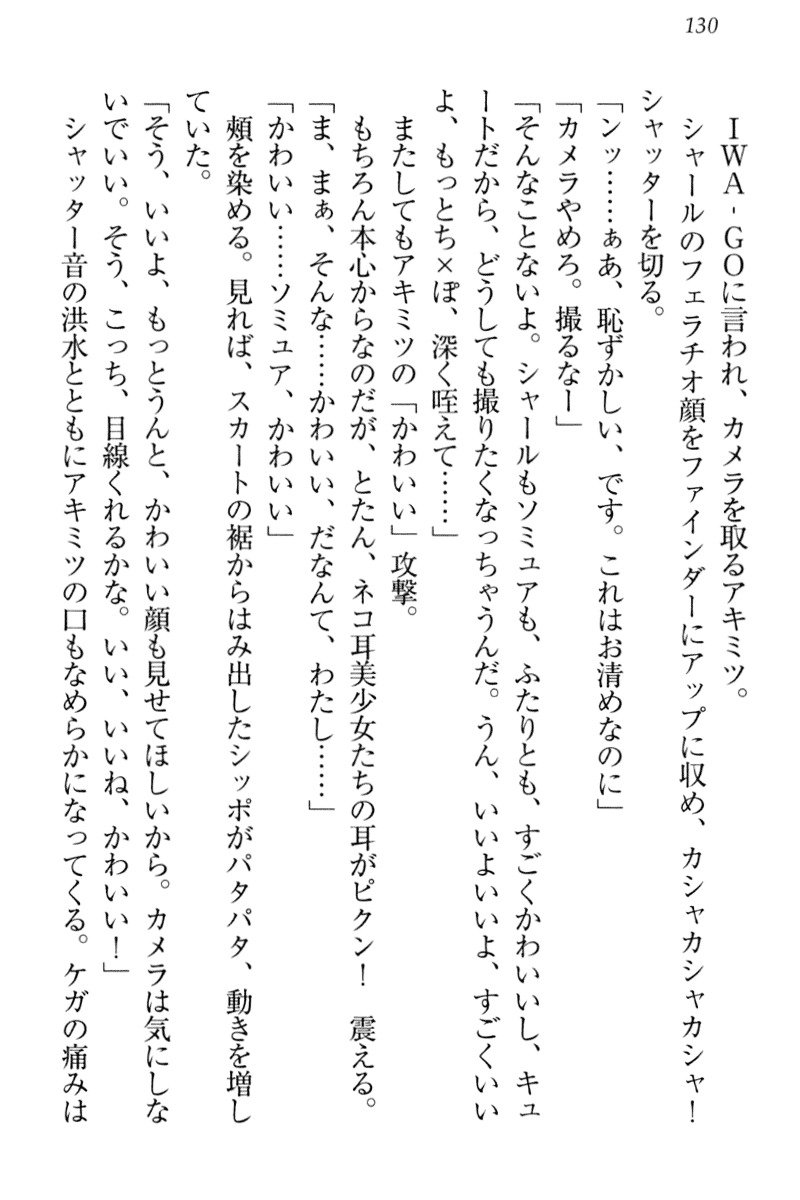 130
IWA-GOに言われ、カメラを取るアキミツ。
シャールのフェラチオ顔をファインダーにアップに収め、カシャカシャカシャ!
シャッターを切る。
「ンッ……ぁあ、恥ずかしい、です。これはお清めなのに」
「カメラやめろ。撮るなー」
「そんなことないよ。シャールもソミュアも、ふたりとも、すごくかわいいし、キュ
ートだから、どうしても撮りたくなっちゃうんだ。うん、いいよいいよ、すごくいい
よ、もっとち×ぽ、深く咥えて……」
またしてもアキミツの「かわいい」攻撃。
もちろん本心からなのだが、とたん、ネコ耳美少女たちの耳がピクン! 震える。
「ま、まぁ、そんな……かわいい、だなんて、わたし……」
「かわいい……ソミュア、かわいい」
頬を染める。見れば、スカートの裾からはみ出したシッポがパタパタ、動きを増し
ていた。
「そう、いいよ、もっとうんと、かわいい顔も見せてほしいから。カメラは気にしな
いでいい。そう、こっち、目線くれるかな。いい、いいね、かわいい!」
シャッター音の洪水とともにアキミツの口もなめらかになってくる。ケガの痛みは